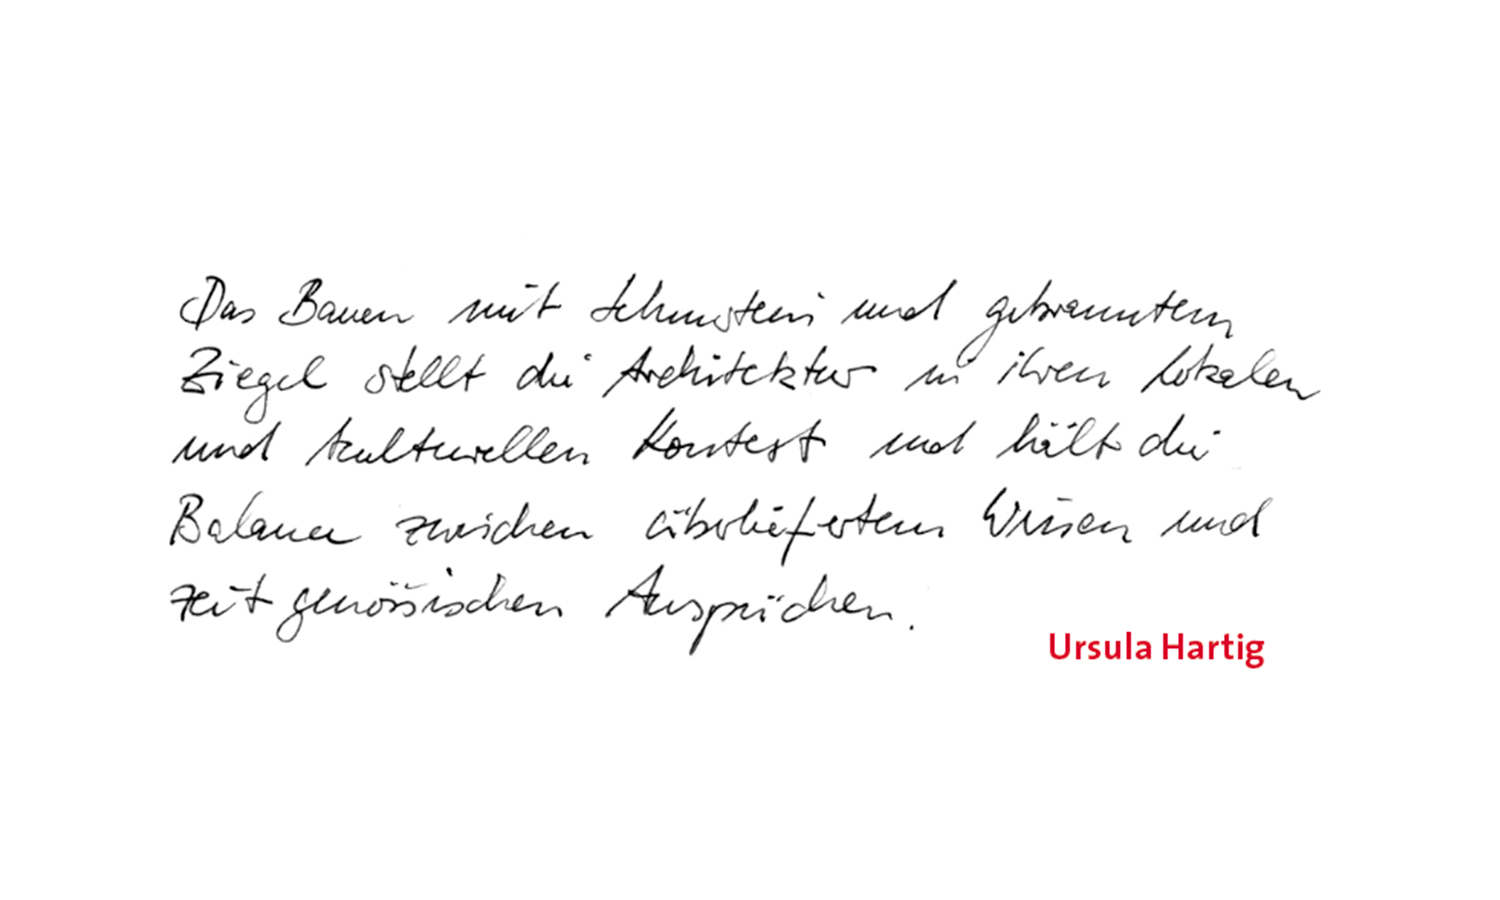 Das Bauen mit Lehmstein und gebranntem
Ziegel stellt die Architektur in ihren lokalen
und kulturellen Kontext und hält die
Balance zwischen überliefertem Wissen und
zeitgenössischen Ansprüchen.
Ursula Hartig